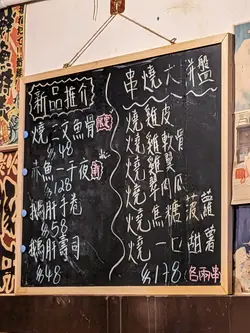 新品推介
燒三文魚骨
$48
赤魚一夜干
$128
鵝肝手卷
$58
鵝肝壽司
$48
串燒六拼盤
燒雞皮
燒雞軟骨
燒雞翼
燒羊肉瓜
燒烏糖菠蘿
燒一口甜薯
$178
各兩串